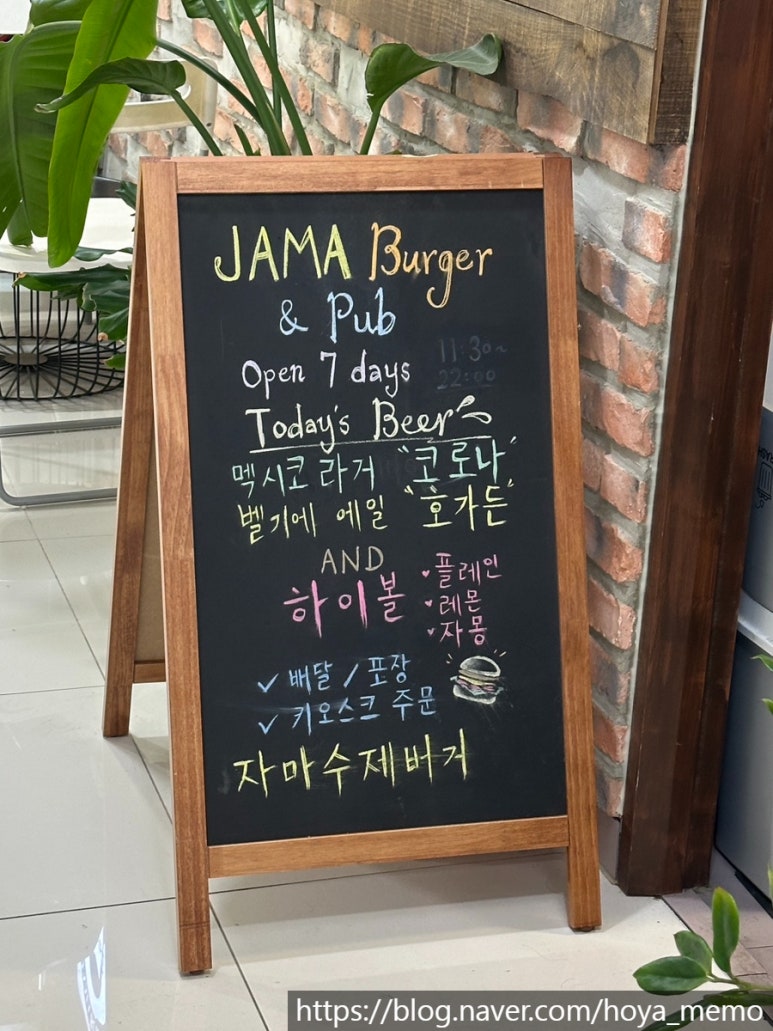 JAMA Burger
& Pub
Open 7 days
11:30~
22:00
Today's Beer
멕시코 라거 "코로나"
벨기에 에일 "호가든"
AND
하이볼
♥플레인
♥레몬
♥자몽
✓ 배달 / 포장
✓ 키오스크 주문
자마수제버거
https://blog.naver.com/hoya_memo